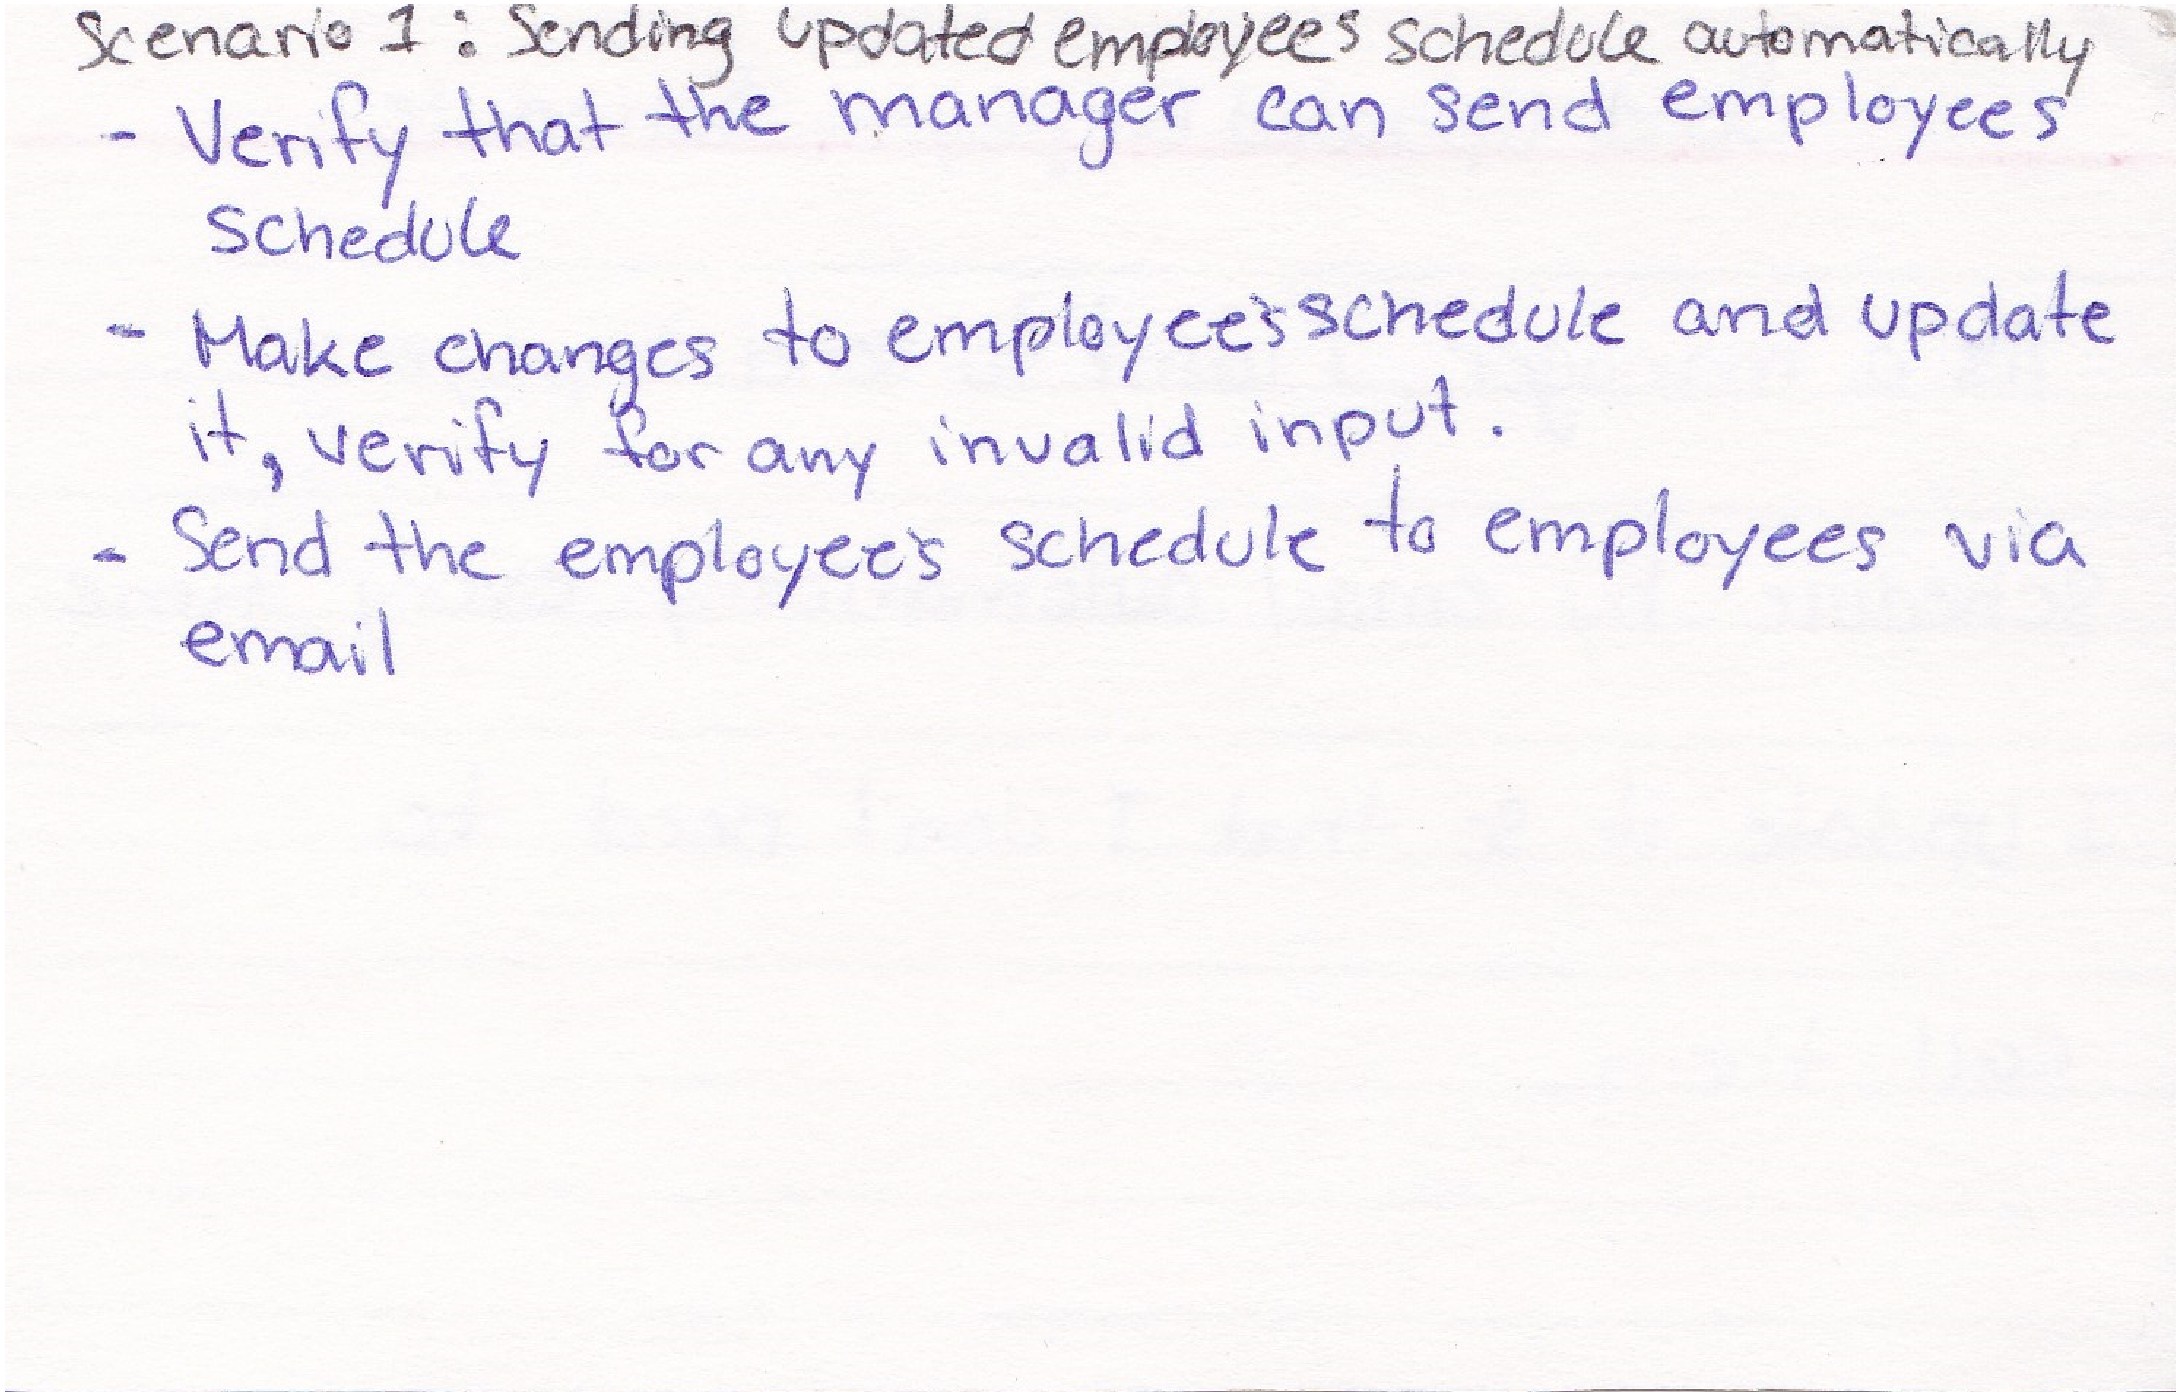 Scenario 1: Sending updated employees schedule automatically
- Verify that the manager can send employees
schedule
- Make changes to employee's schedule and update
it, verify for any invalid input.
- Send the employee's schedule to employees via
email